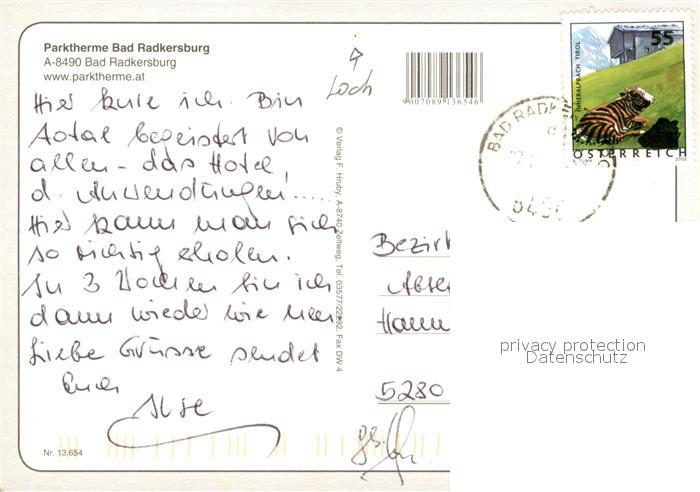 Parktherme Bad Radkersburg
A-8490 Bad Radkersburg
www.parktherme.at
Loch
9 007089 136546
55
INNERALPBACH TIROL
ÖSTERREICH
2002
BAD RADK
Hier kure ich. Bin
total begeistert von
allem - das Hotel,
d. Anwendungen.....
Hier kann man sich
so richtig erholen.
In 3 Wochen bin ich
dann wieder wie neu.
Liebe Grüsse sendet
Euch
Ilse
© Verlag F. Hruby, A-8740 Zeltweg, Tel. 03577/22292, Fax DW 4
Bezirk
5280
privacy protection
Datenschutz
Nr. 13.654